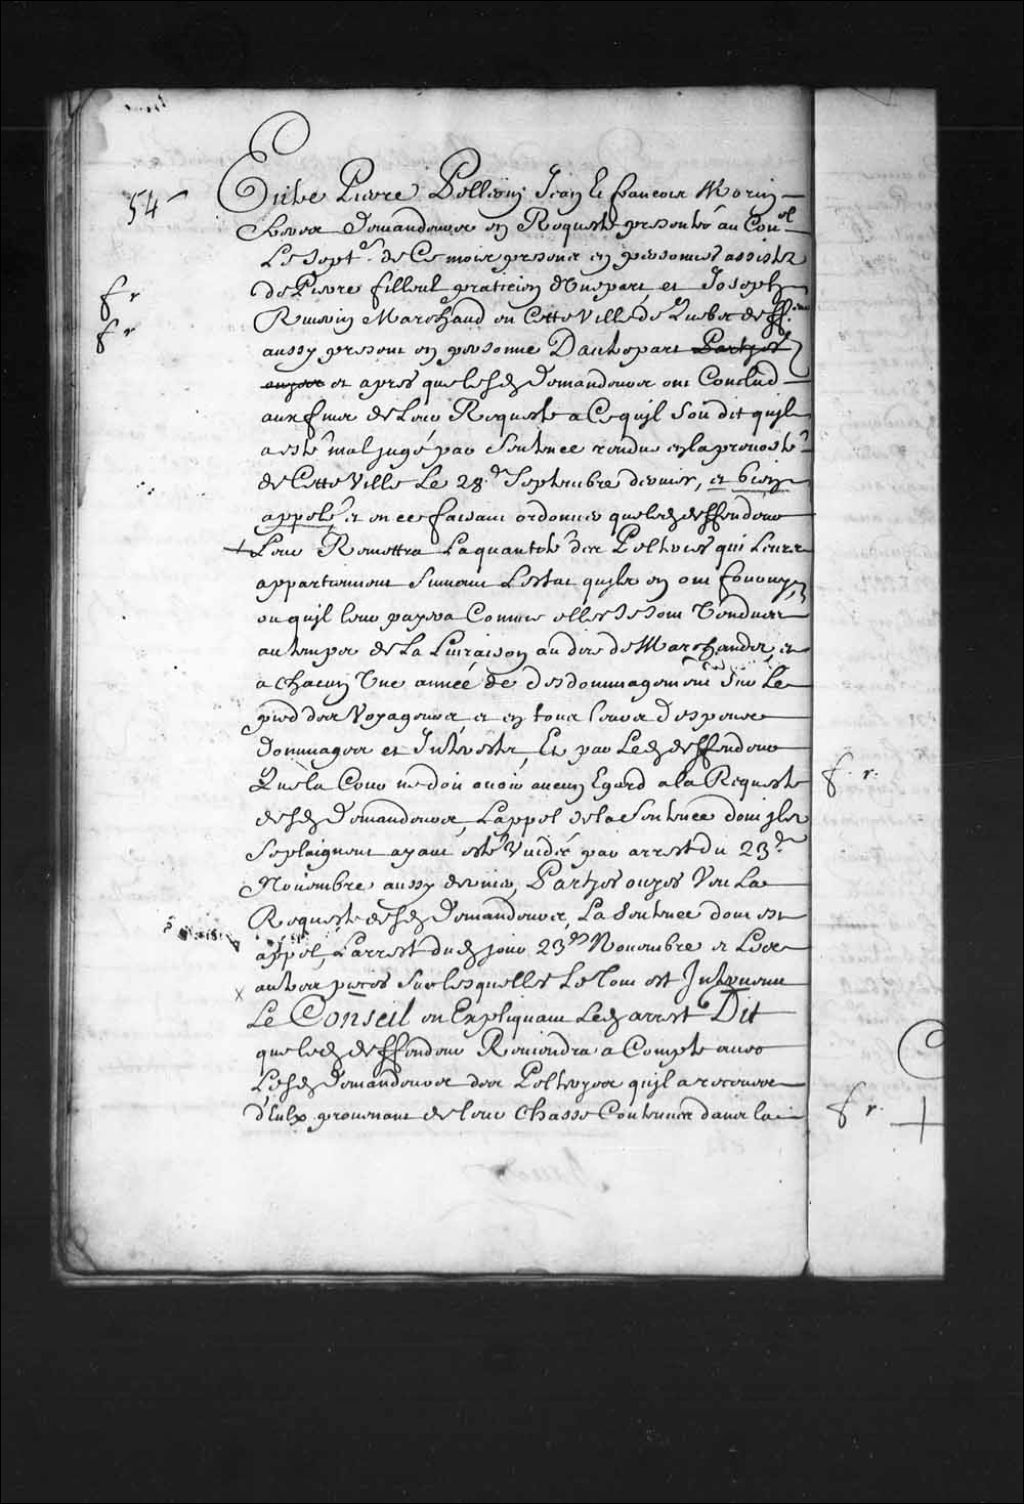 54
Entre Pierre Pellerin Jean et francois Morin
freres demandeurs en Requeste presentée au Con.el
Le Sept.e de Ce mois presens en personnes assistez
de Pierre filleul praticien d'Une part, et Joseph
Riverin Marchand en Cette Ville de Quebec deff.eur
aussy present en personne Dautre part Partyes
ouyes et apres que lesd demandeurs ont Conclud
aux fins de Leur Requeste a Ce quil Soit dit quil
a esté mal jugé par Sentence rendue en la prevosté
de Cette Ville Le 28.e Septembre dernier, et bien
appelé et en ce faisant ordonner que led deffendeur
Leur Remettra La quantité des Pelteries qui Leurs
appartiennent Suivant Lestat quils en ont fourny,
ou quil leur payera Comme elles se sont Vendues
au temps de La Livraison au dire de Marchands, et
a chacun Une année de desdommagement Sur Le
pied des Voyageurs, et en tous leurs despens
dommages et Interests, Et par Led deffendeur
Que la Cour ne doit avoir aucun Egard a la Requeste
desd demandeurs, Lappel de la Sentence dont ils
Se plaignent ayant esté Vuidé par arrest du 23.e
Novembre aussy dernier, Partyes ouyes Veu La
Requeste desd demandeurs, La Sentence dont est
appel, Larrest dud jour 23.e Novembre et Les
autres pieces Sur lesquelles Le Tout est Intervenu
Le Conseil en Expliquant Led arrest Dit
que led deffendeur Reviendra a Compte avec
Lesd demandeurs des Pelteryes quil a receues
d'Eulx provenant de leur Chasse Contenues dans la
f r
f r
f r
f r